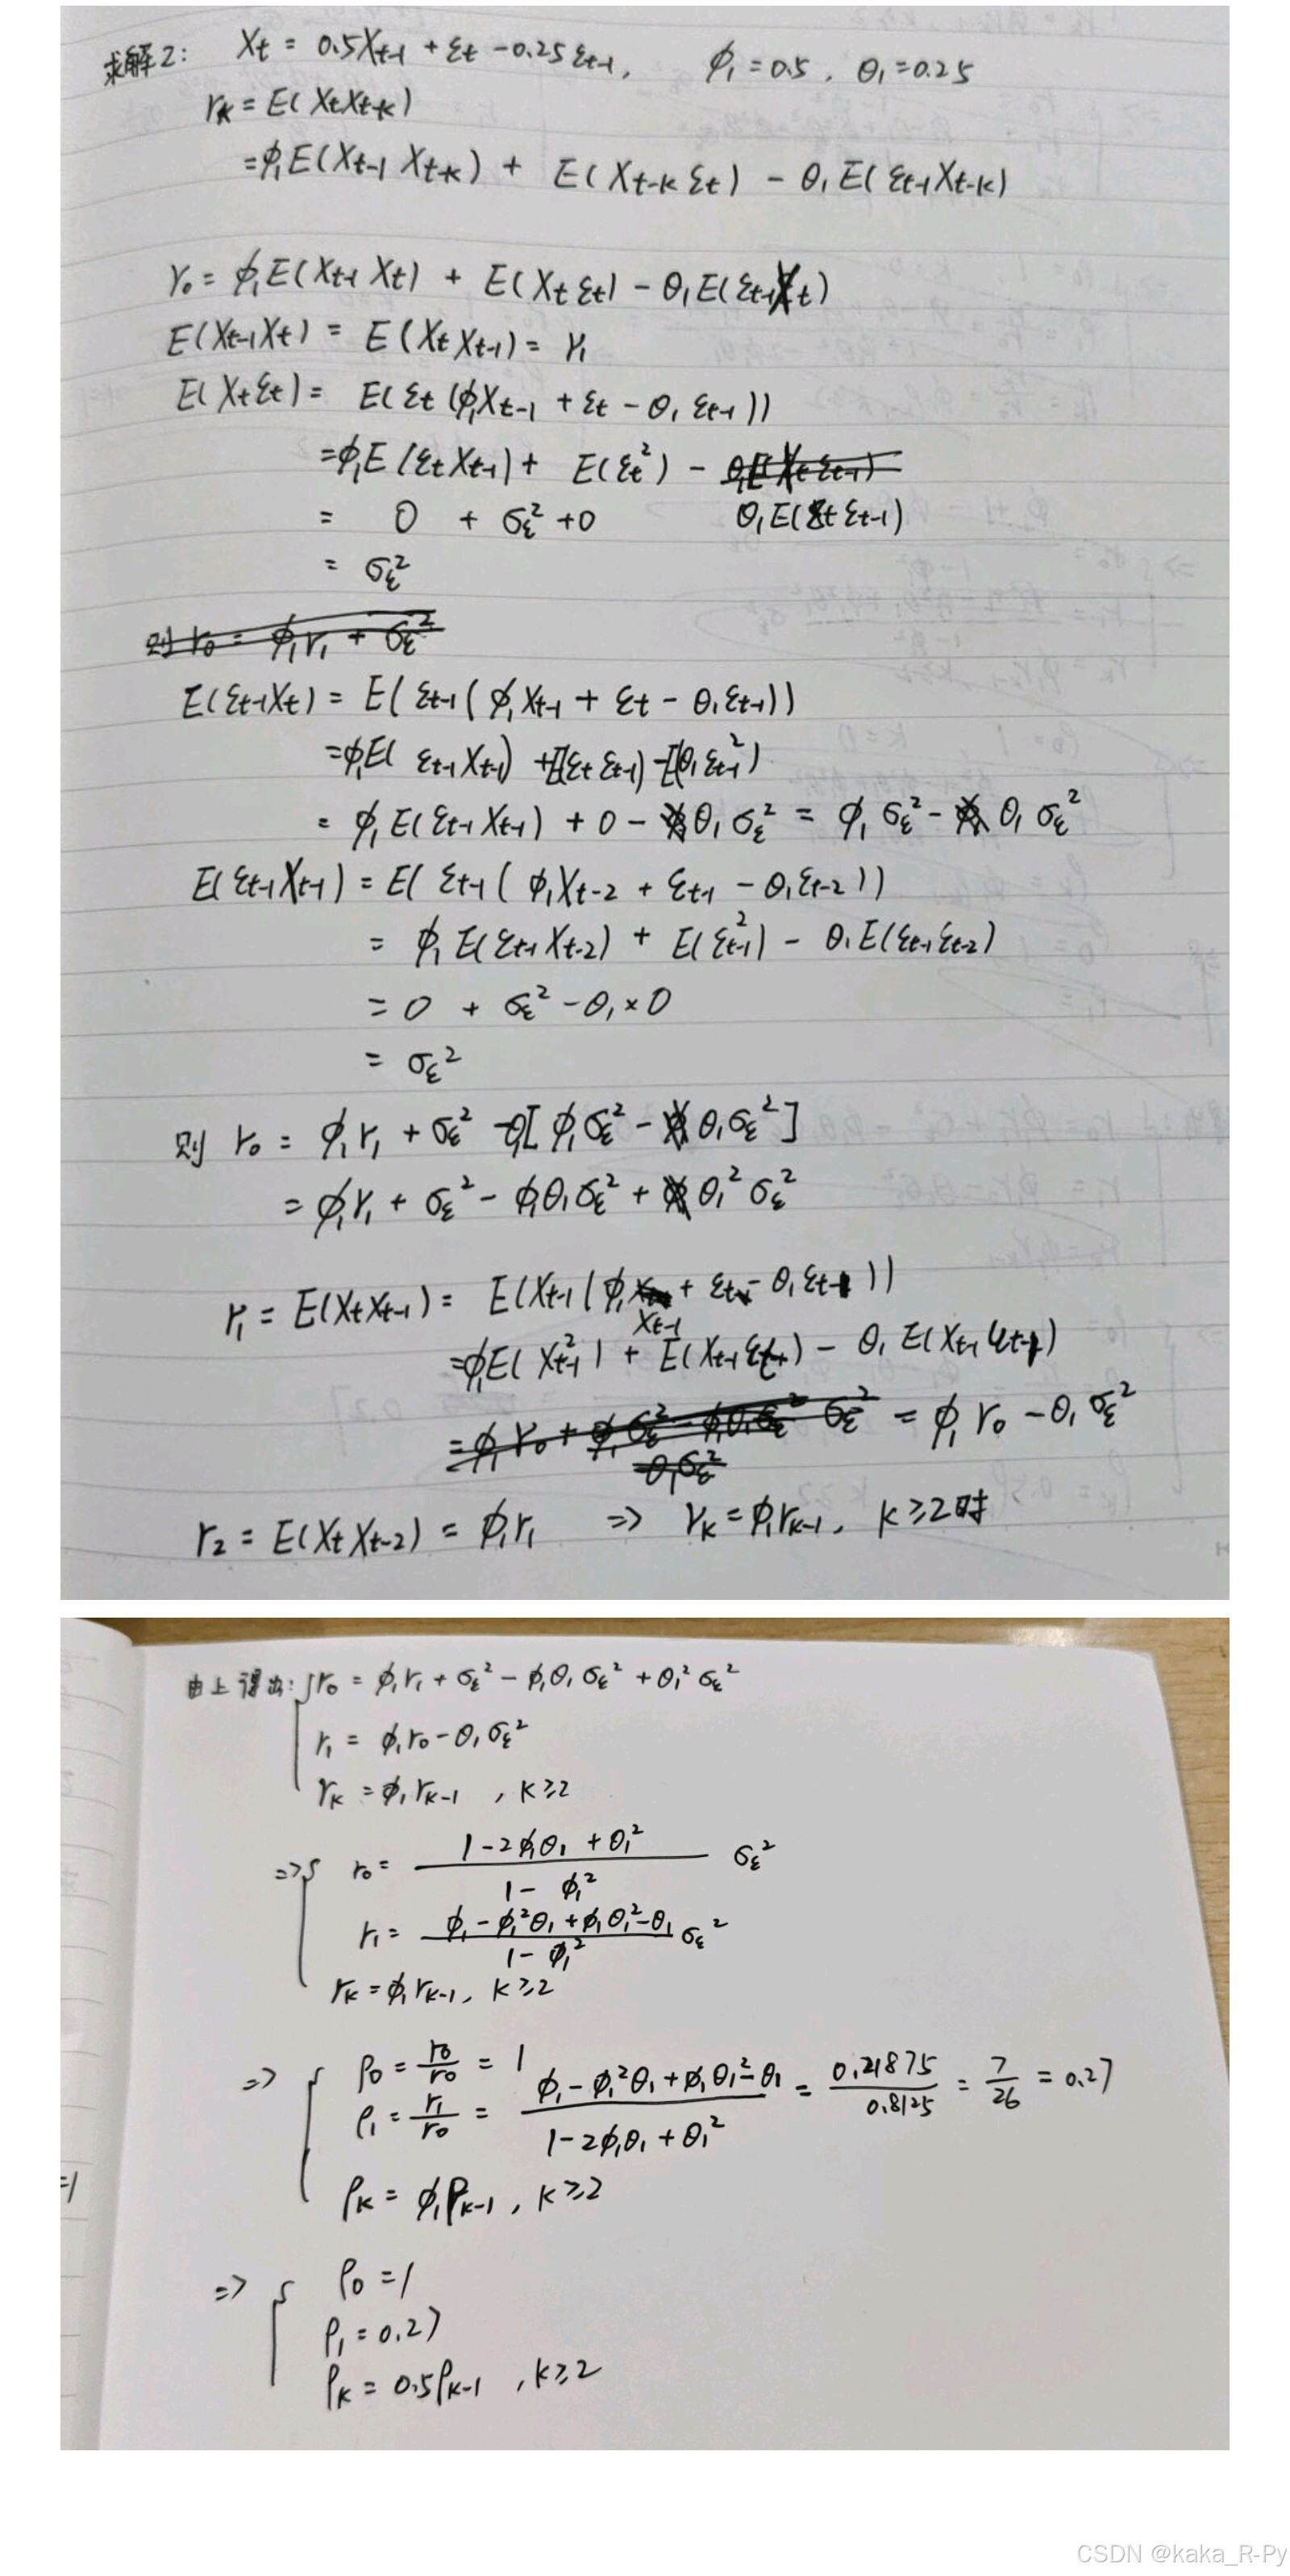 求解2: Xt = 0.5Xt-1 + εt -0.25εt-1, ϕ1 = 0.5, θ1 = 0.25
rk = E(XtXt-k)
= ϕ1E(Xt-1 Xt-k) + E(Xt-k εt) - θ1E(εt-1Xt-k)
r0 = ϕ1E(Xt-1 Xt) + E(Xt εt) - θ1E(εt-1Xt)
E(Xt-1Xt) = E(Xt Xt-1) = r1
E(Xtεt) = E(εt(ϕ1Xt-1 + εt - θ1 εt-1))
= ϕ1E(εtXt-1) + E(εt²) - θ1E(εt εt-1)
= 0 + σε² + 0
= σε²
则 r0 = ϕ1r1 + σε²
E(εt-1Xt) = E(εt-1(ϕ1Xt-1 + εt - θ1εt-1))
= ϕ1E(εt-1Xt-1) + E(εt εt-1) - E(θ1 εt-1²)
= ϕ1E(εt-1Xt-1) + 0 - θ1σε² = ϕ1σε² - θ1σε²
E(εt-1Xt-1) = E(εt-1(ϕ1Xt-2 + εt-1 - θ1εt-2))
= ϕ1E(εt-1Xt-2) + E(εt-1²) - θ1E(εt-1εt-2)
= 0 + σε² - θ1×0
= σε²
则 r0 = ϕ1r1 + σε² - θ1[ϕ1σε² - θ1σε²]
= ϕ1r1 + σε² - ϕ1θ1σε² + θ1²σε²
r1 = E(XtXt-1) = E(Xt-1(ϕ1Xt-1 + εt - θ1εt-1))
= ϕ1E(Xt-1²) + E(Xt-1εt) - θ1E(Xt-1εt-1)
= ϕ1r0 - θ1σε²
r2 = E(XtXt-2) = ϕ1r1 => rk = ϕ1rk-1, k≥2时
由上得出: r0 = ϕ1r1 + σε² - ϕ1θ1σε² + θ1²σε²
r1 = ϕ1r0 - θ1σε²
rk = ϕ1rk-1, k≥2
=> r0 = (1-2ϕ1θ1+θ1²)/(1-ϕ1²) σε²
r1 = (ϕ1-ϕ1²θ1+ϕ1θ1²-θ1)/(1-ϕ1²) σε²
rk = ϕ1rk-1, k≥2
=> ρ0 = r0/r0 = 1
ρ1 = r1/r0 = (ϕ1-ϕ1²θ1+ϕ1θ1²-θ1)/(1-2ϕ1θ1+θ1²) = 0.21875/0.8125 = 7/26 = 0.27
ρk = ϕ1ρk-1, k≥2
=> ρ0 = 1
ρ1 = 0.27
ρk = 0.5ρk-1, k≥2
CSDN @kaka_R-Py